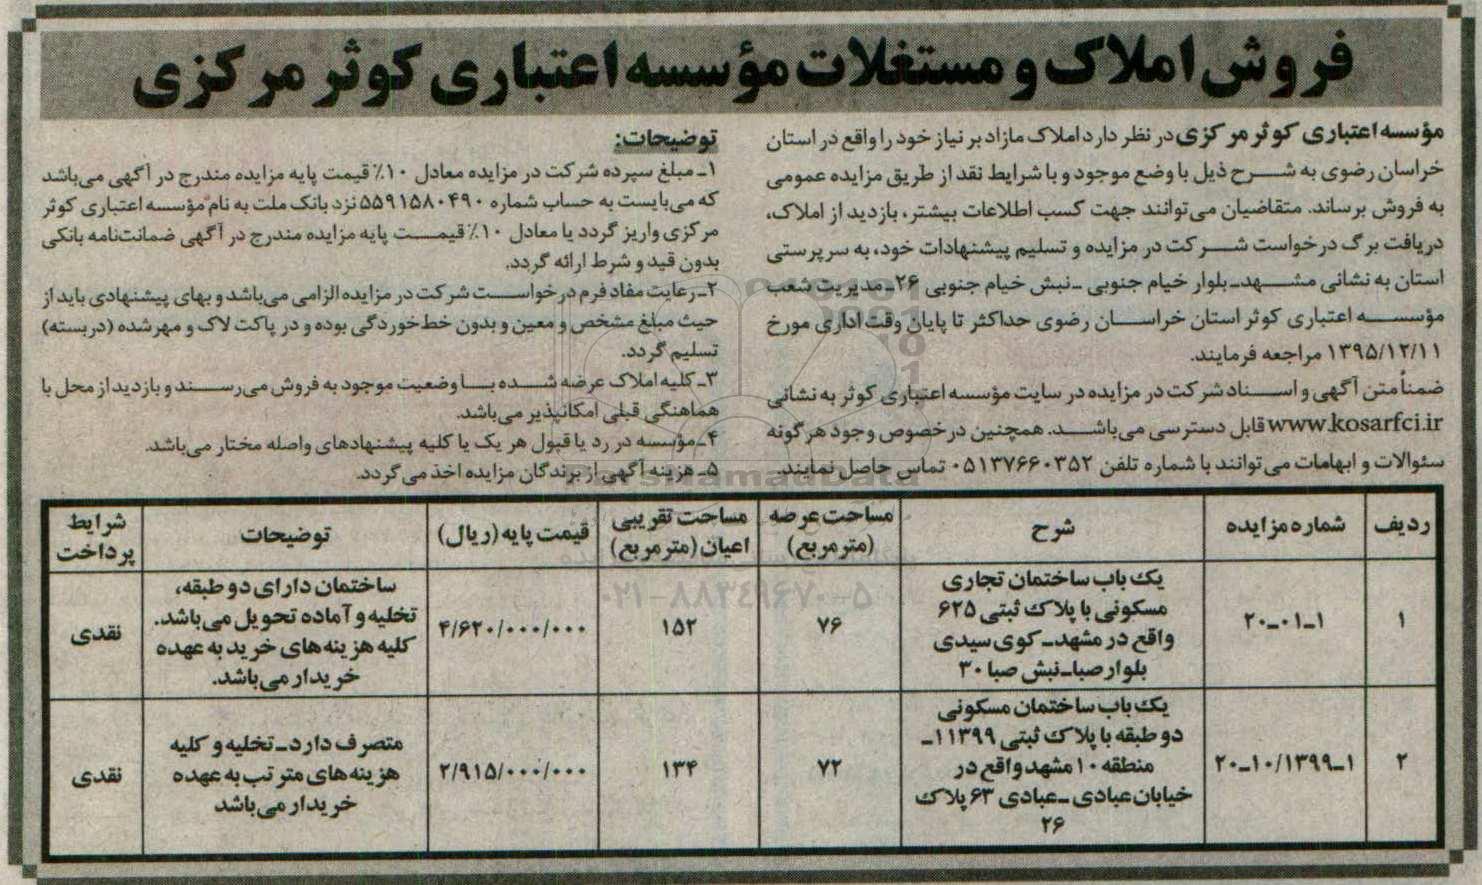 فروش املاک و مستغلات مؤسسه اعتباری کوثر مرکزی
مؤسسه اعتباری کوثر مرکزی در نظر دارد املاک مازاد بر نیاز خود را واقع در استان
خراسان رضوی به شرح ذیل با وضع موجود و با شرایط نقد از طریق مزایده عمومی
به فروش برساند. متقاضیان می‌توانند جهت کسب اطلاعات بیشتر، بازدید از املاک،
دریافت برگ درخواست شرکت در مزایده و تسلیم پیشنهادات خود، به سرپرستی
استان به نشانی مشهد-بلوار خیام جنوبی -نبش خیام جنوبی ۲۶-مدیریت شعب
مؤسسه اعتباری کوثر استان خراسان رضوی حداکثر تا پایان وقت اداری مورخ
۱۳۹۵/۱۲/۱۱ مراجعه فرمایند.
ضمناً متن آگهی و اسناد شرکت در مزایده در سایت مؤسسه اعتباری کوثر به نشانی
www.kosarfci.ir قابل دسترسی می‌باشد. همچنین درخصوص وجود هرگونه
سئوالات و ابهامات می‌توانند با شماره تلفن ۰۵۱۳۷۶۶۰۳۵۲ تماس حاصل نمایند.
توضیحات:
۱- مبلغ سپرده شرکت در مزایده معادل ۱۰٪ قیمت پایه مزایده مندرج در آگهی می‌باشد
که می‌بایست به حساب شماره ۵۵۹۱۵۸۰۴۹۰ نزد بانک ملت به نام مؤسسه اعتباری کوثر
مرکزی واریز گردد یا معادل ۱۰٪ قیمت پایه مزایده مندرج در آگهی ضمانت‌نامه بانکی
بدون قید و شرط ارائه گردد.
۲- رعایت مفاد فرم درخواست شرکت در مزایده الزامی می‌باشد و بهای پیشنهادی باید از
حیث مبلغ مشخص و معین و بدون خط‌خوردگی بوده و در پاکت لاک و مهر شده (دربسته)
تسلیم گردد.
۳- کلیه املاک عرضه شده با وضعیت موجود به فروش می‌رسند و بازدید از محل با
هماهنگی قبلی امکانپذیر می‌باشد.
۴- مؤسسه در رد یا قبول هر یک یا کلیه پیشنهادهای واصله مختار می‌باشد.
۵- هزینه آگهی از برندگان مزایده اخذ می‌گردد.
ردیف | شماره مزایده | شرح | مساحت عرصه (مترمربع) | مساحت تقریبی اعیان (مترمربع) | قیمت پایه (ریال) | توضیحات | شرایط پرداخت
۱ | ۱-۰۱-۲۰ | یک باب ساختمان تجاری مسکونی با پلاک ثبتی ۶۲۵ واقع در مشهد- کوی سیدی بلوار صبا-نبش صبا ۳۰ | ۷۶ | ۱۵۲ | ۴/۶۲۰/۰۰۰/۰۰۰ | ساختمان دارای دو طبقه، تخلیه و آماده تحویل می‌باشد. کلیه هزینه‌های خرید به عهده خریدار می‌باشد. | نقدی
۲ | ۱-۲۰-۱۰/۱۳۹۹ | یک باب ساختمان مسکونی دو طبقه با پلاک ثبتی ۱۱۳۹۹- منطقه ۱۰ مشهد واقع در خیابان عبادی -عبادی ۶۳ پلاک ۲۶ | ۷۲ | ۱۳۴ | ۲/۹۱۵/۰۰۰/۰۰۰ | متصرف دارد-تخلیه و کلیه هزینه‌های مترتب به عهده خریدار می‌باشد | نقدی
ParsNamadData
۰۲۱-۸۸۳۴۹۶۷۰-۵